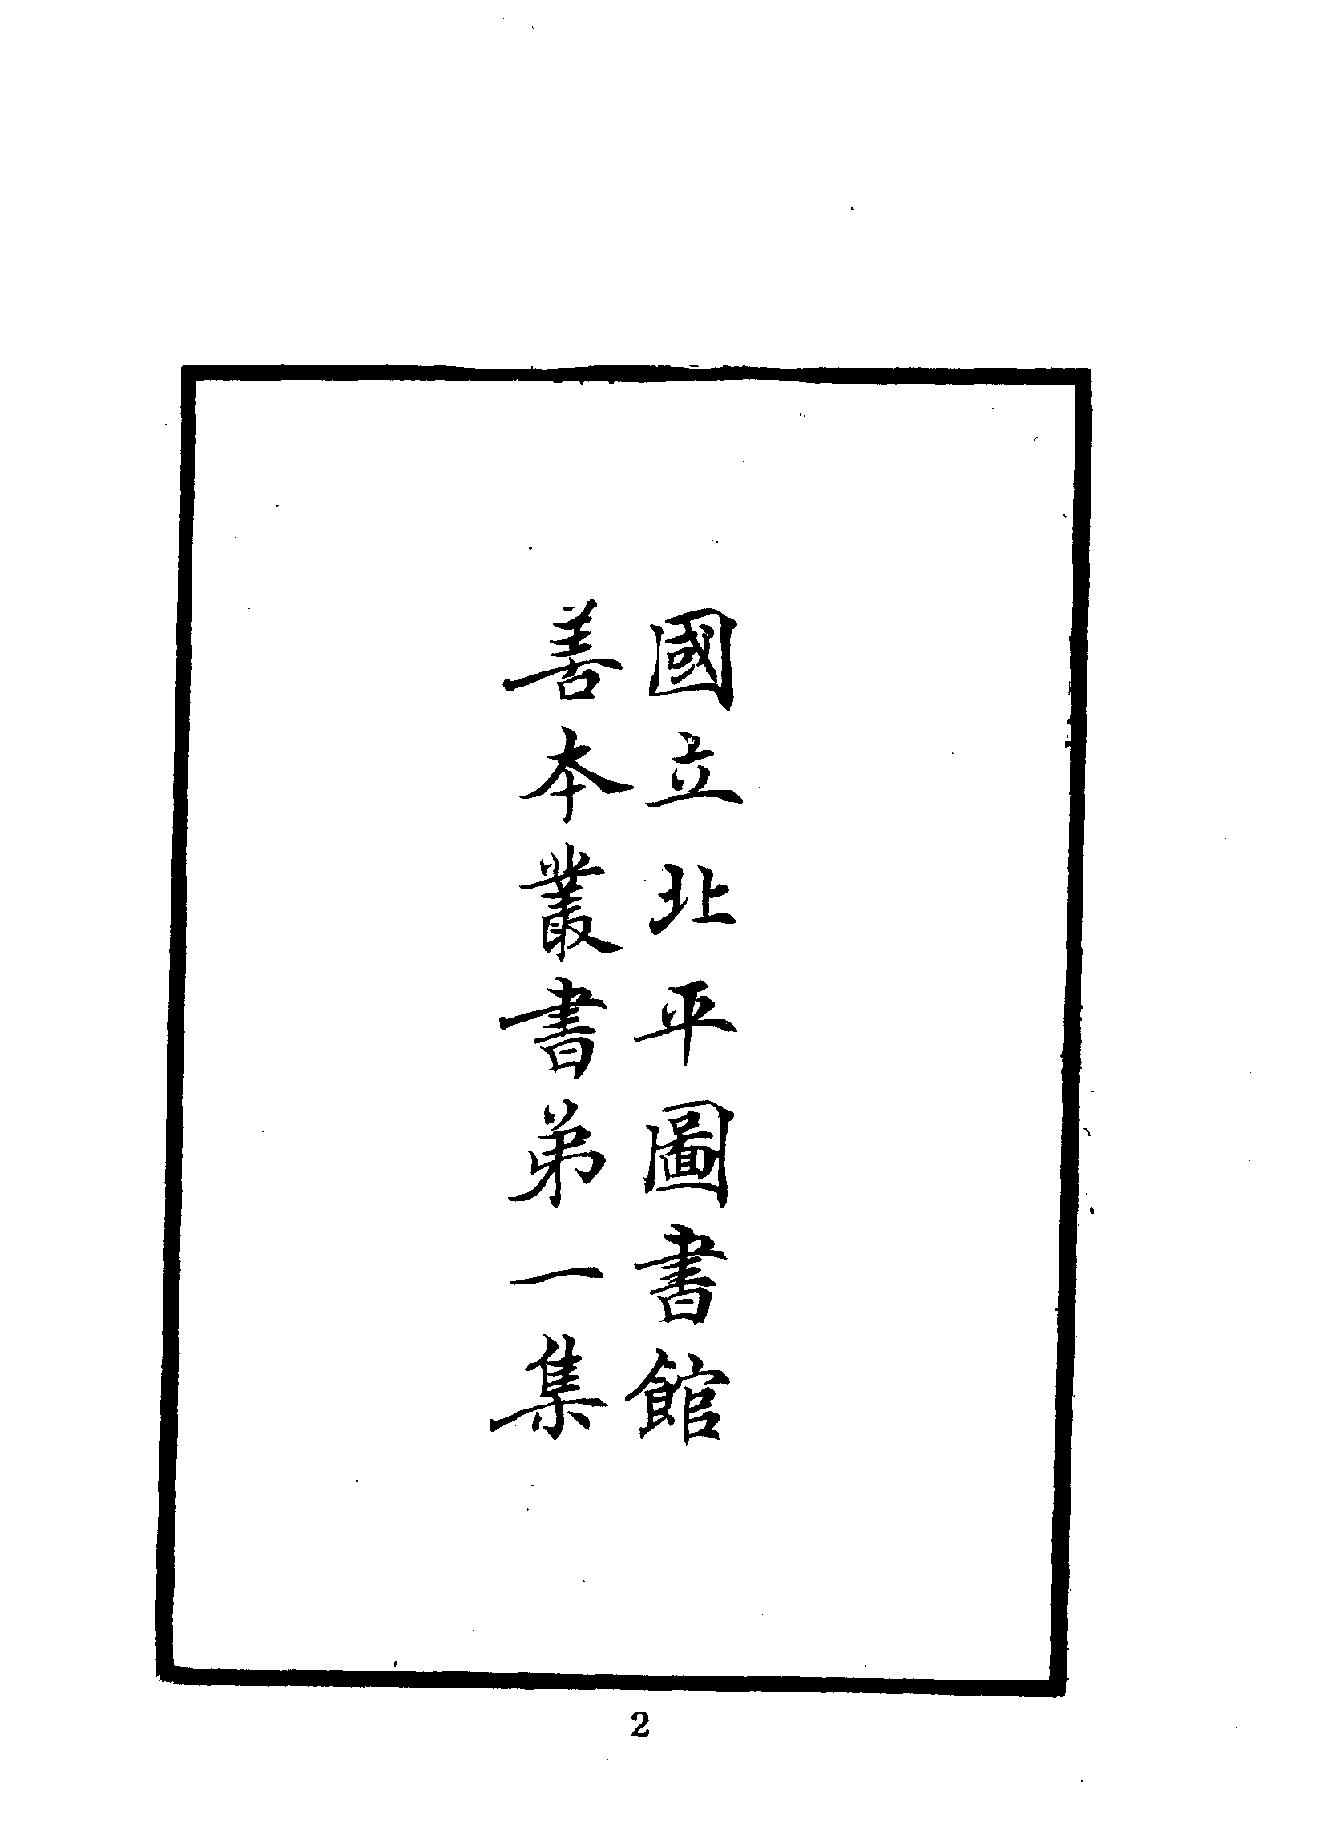 國立北平圖書館
善本叢書弟一集
2